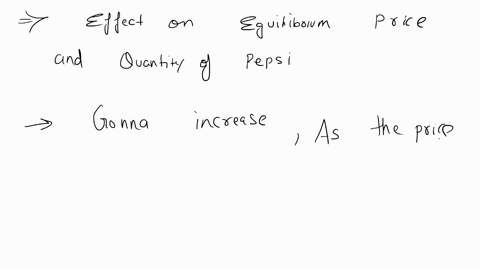 ⇒ Effect on Equilibrium Price
and Quantity of Pepsi
→ Gonna increase, As the price